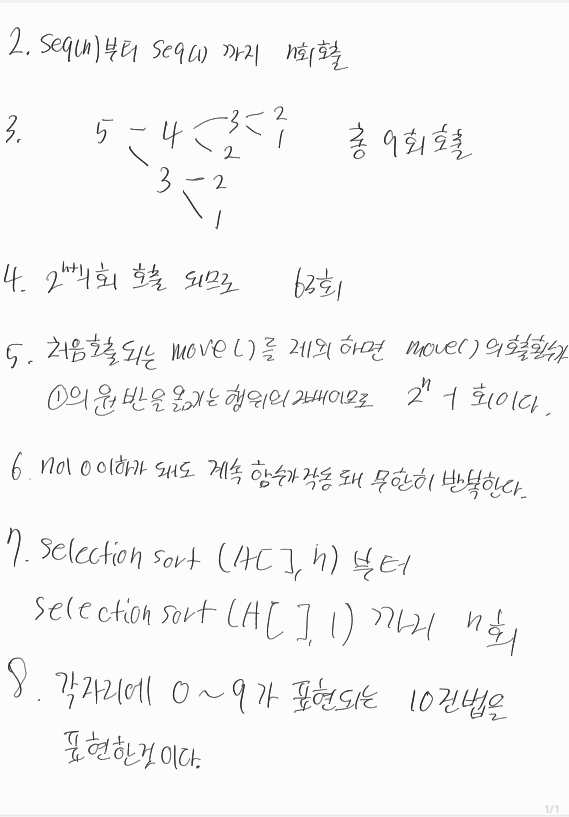 2. Seq(n)부터 Seq(1) 까지 n회 호출
3. 5 - 4 3 - 2 총 9회 호출
2 1
3 - 2
1
4. 2ⁿ⁺¹-1회 호출 되므로 63회
5. 처음호출되는 move()를 제외 하면 move()의 호출횟수가
①의 원반을 옮기는 행위의 2배이므로 2ⁿ-1 회이다.
6. n이 0 이하가 돼도 계속 함수가 작동돼 무한히 반복한다.
7. selection sort (A[ ], n) 부터
selection sort (A[ ], 1) 까지 n회
8. 각자리에 0~9가 표현되는 10진법을
표현한것이다.
1/1